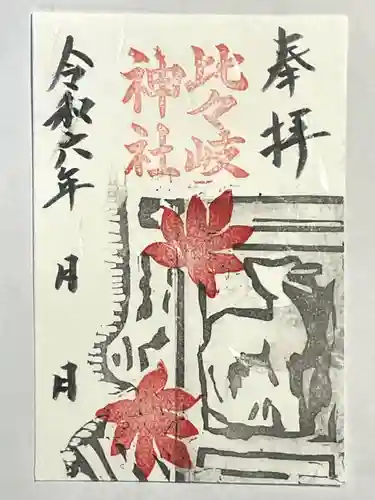 奉拝
比々岐
神社
令和六年 月 月